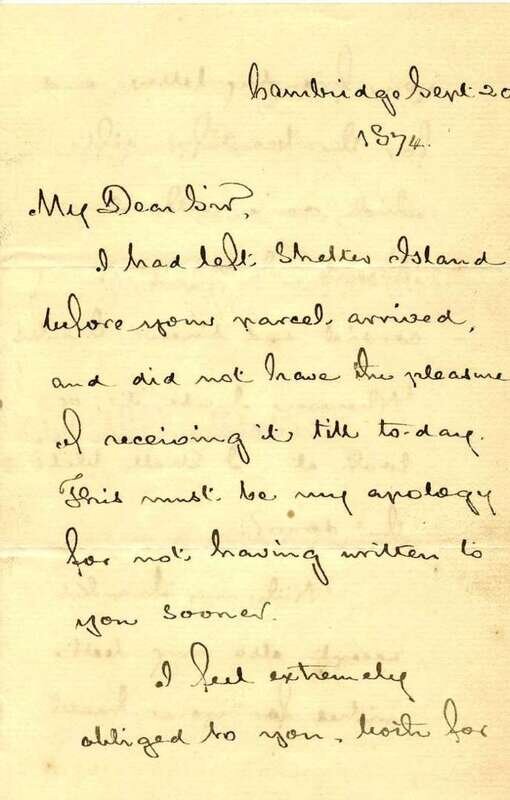 Cambridge Sept 20
1874.
My Dear Sir,
I had left Shelter Island
before your parcel arrived,
and did not have the pleasure
of receiving it till to-day.
This must be my apology
for not having written to
you sooner.
I feel extremely
obliged to you, both for